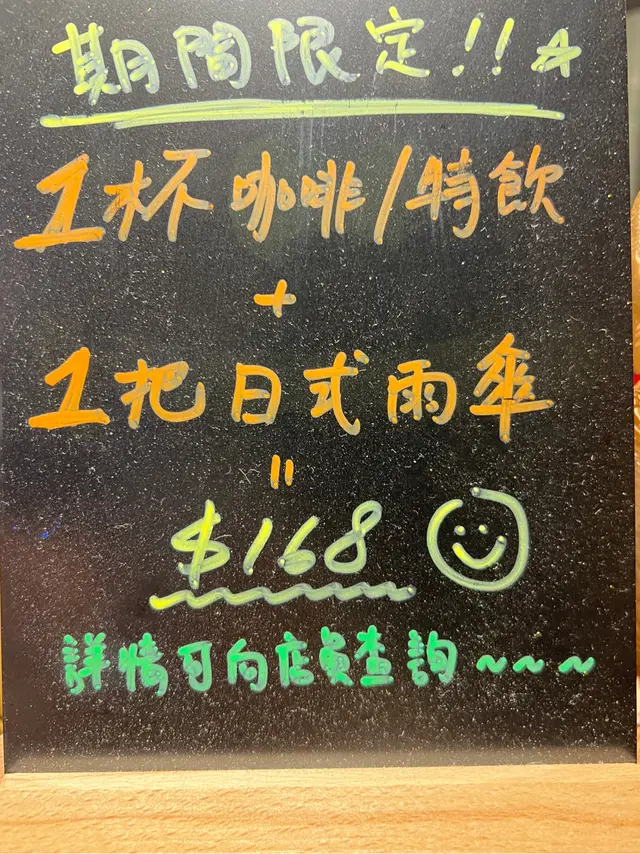 期間限定!!☆
1杯咖啡/特飲
+
1把日式雨傘
=
$168
詳情可向店員查詢~~~